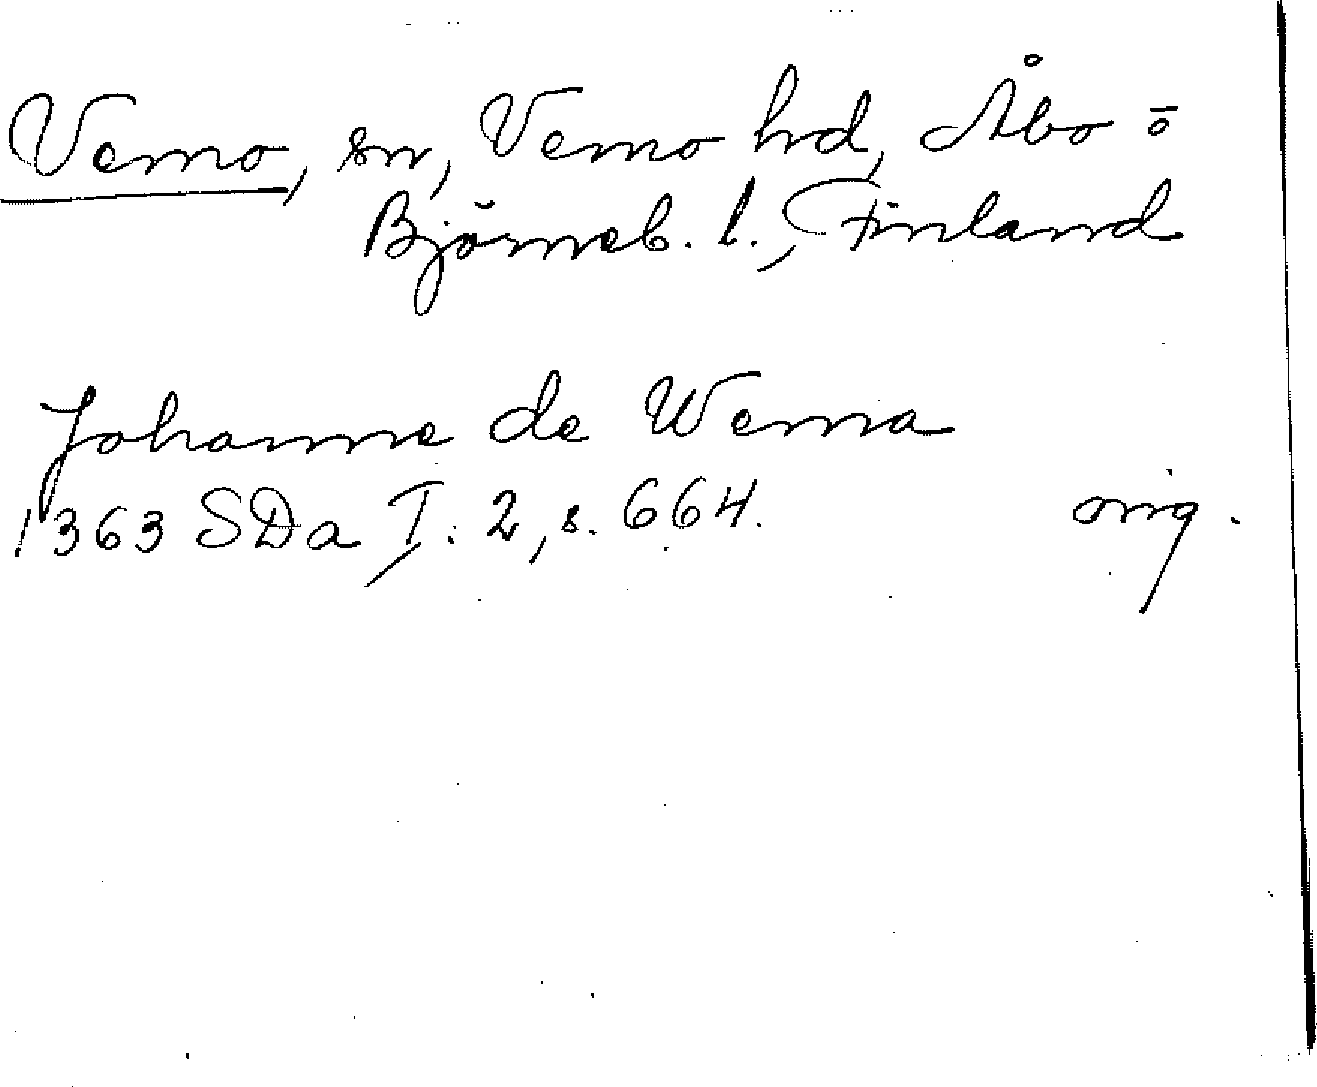 Vemo, sn, Vemo hd, Åbo ō
Björneb. l., Finland
Johanne de Wema
1363 SDa I: 2, s. 664. orig.